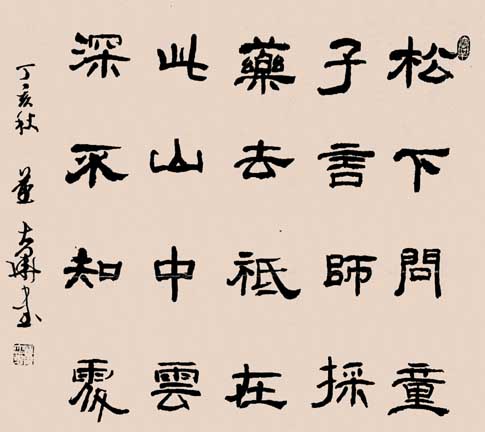 松下問童
子言師採
藥去祇在
此山中雲
深不知處
丁亥秋